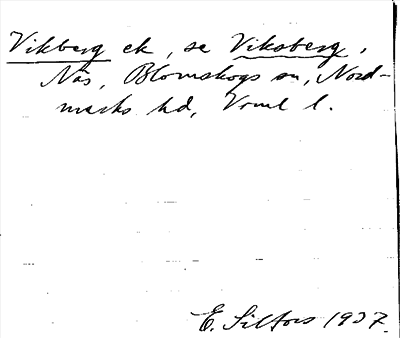 Vikberg ek, se Viksberg,
Näs, Blomskogs sn, Nord-
marks hd, Vrml l.
E. Silfors 1937.